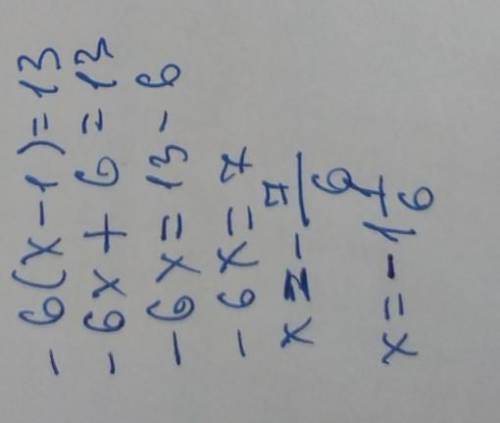 -6(x-1)=13
-6x+6=13
-6x=13-6
-6x=7
x=-7/6
x=-1 1/6